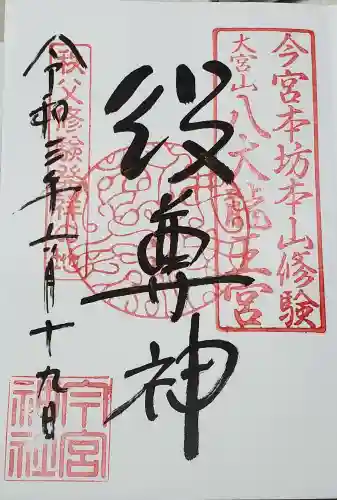 今宮本坊本山修験
大宮山
八大龍王宮
役尊神
秩父修験発祥の地
令和三年六月十九日
今宮神社